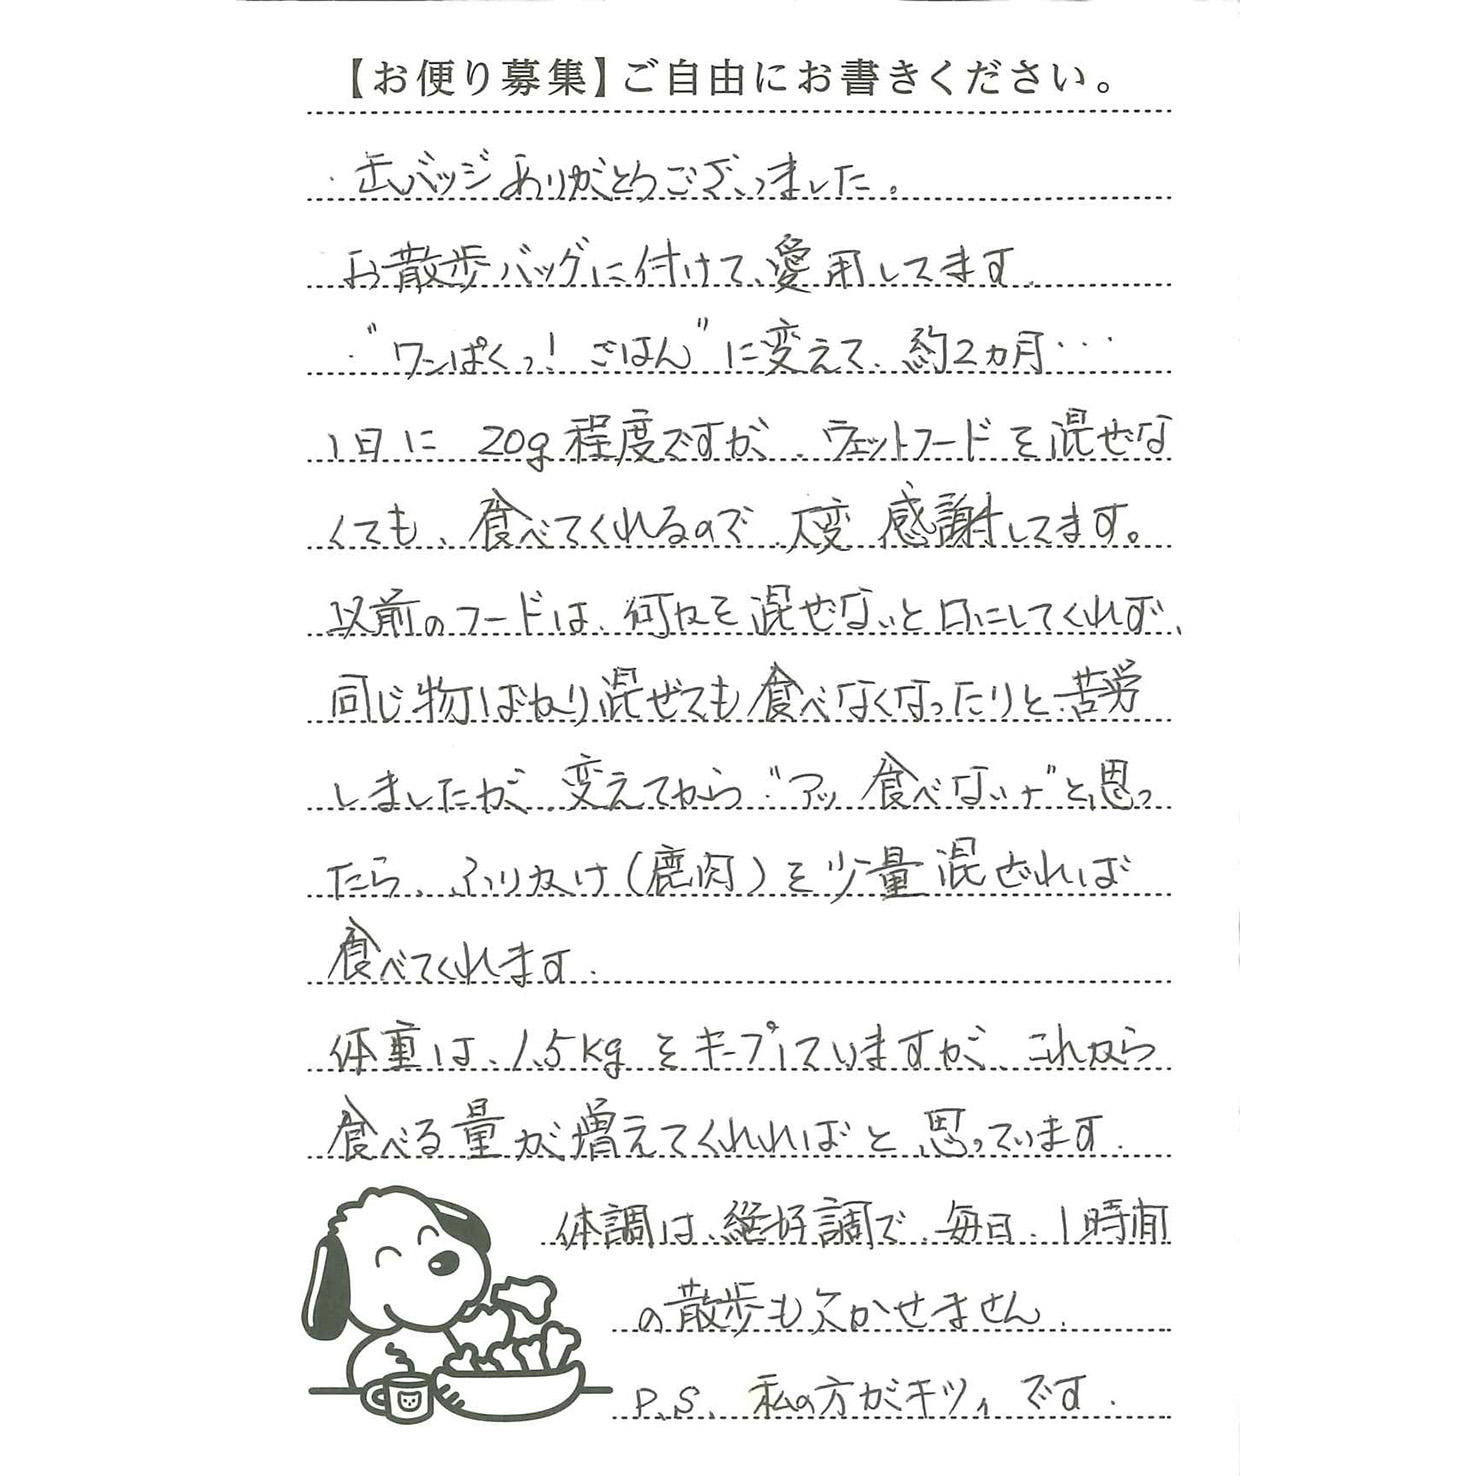 【お便り募集】ご自由にお書きください。
・缶バッジありがとうございました。
お散歩バッグに付けて、愛用してます。
・“ワンぱくっ！ごはん”に変えて、約2ヵ月・・・
1日に 20g程度ですが、ウェットフードを混ぜな
くても、食べてくれるので、大変 感謝してます。
以前のフードは、何かを混ぜないと口にしてくれず、
同じ物ばかり混ぜても食べなくなったりと苦労
しましたが、変えてから“アッ 食べないナ”と思っ
たら、ふりかけ(鹿肉)を少量混ぜれば
食べてくれます。
体重は、1.5kgをキープしていますが、これから
食べる量が増えてくれればと思っています。
体調は、絶好調で、毎日、1時間
の散歩も欠かせません。
P.S. 私の方がキツイです。